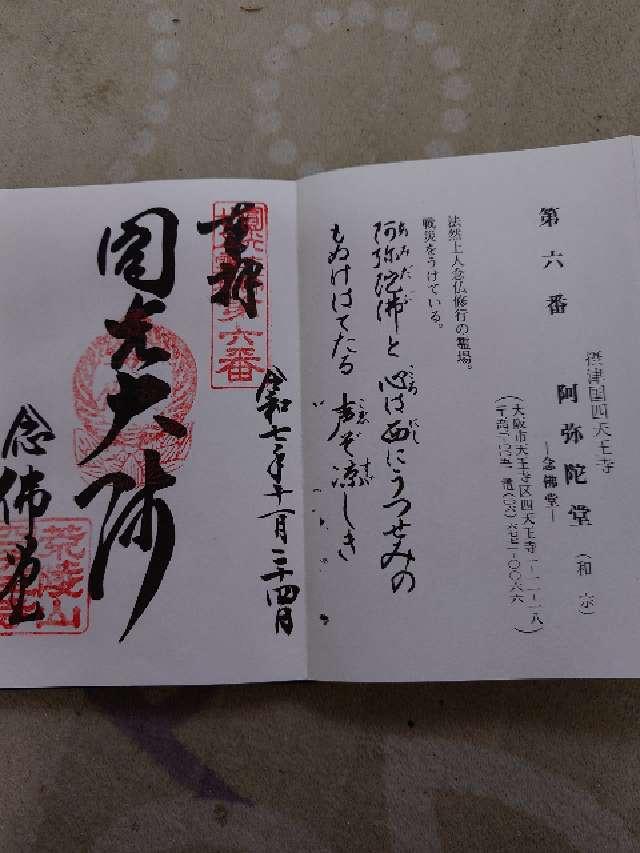 第六番
摂津国四天王寺
阿弥陀堂（和宗）
―念佛堂―
（大阪市天王寺区四天王寺一―一一―一八）
法然上人念仏修行の霊場。
戦災をうけている。
阿弥陀佛と 心は西にうつせみの
もぬけはてたる 声ぞ涼しき
奉拝
第六番
令和七年十一月二十四日
圓光大師
念佛堂
荒陵山